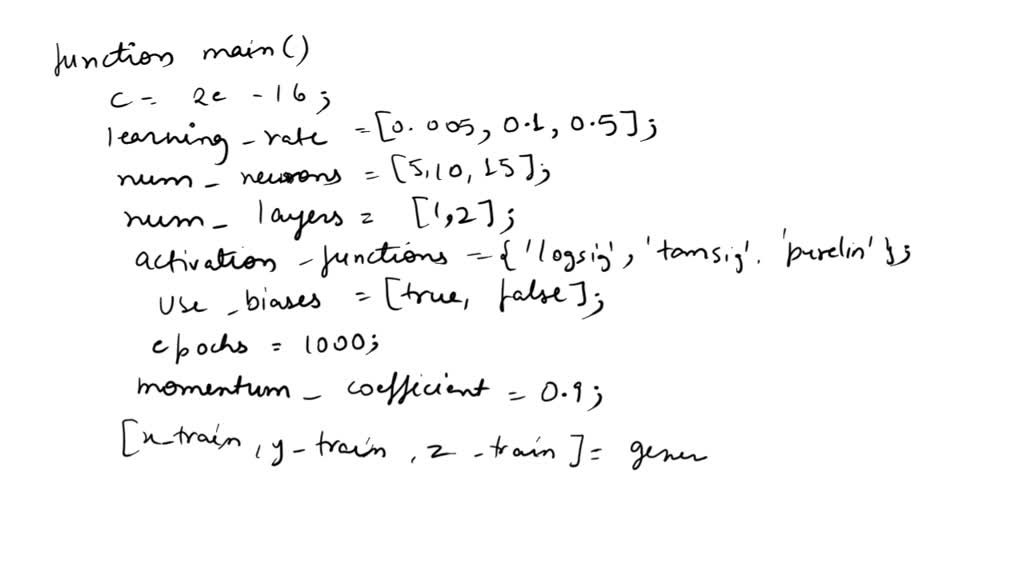 function main()
c = 2e-16;
learning_rate = [0.005, 0.1, 0.5];
num_neurons = [5,10,15];
num_layers = [1,2];
activation_functions = {'logsig', 'tansig'. 'purelin'};
use_biases = [true, false];
epochs = 1000;
momentum_coefficient = 0.9;
[x_train, y_train, z_train] = gener